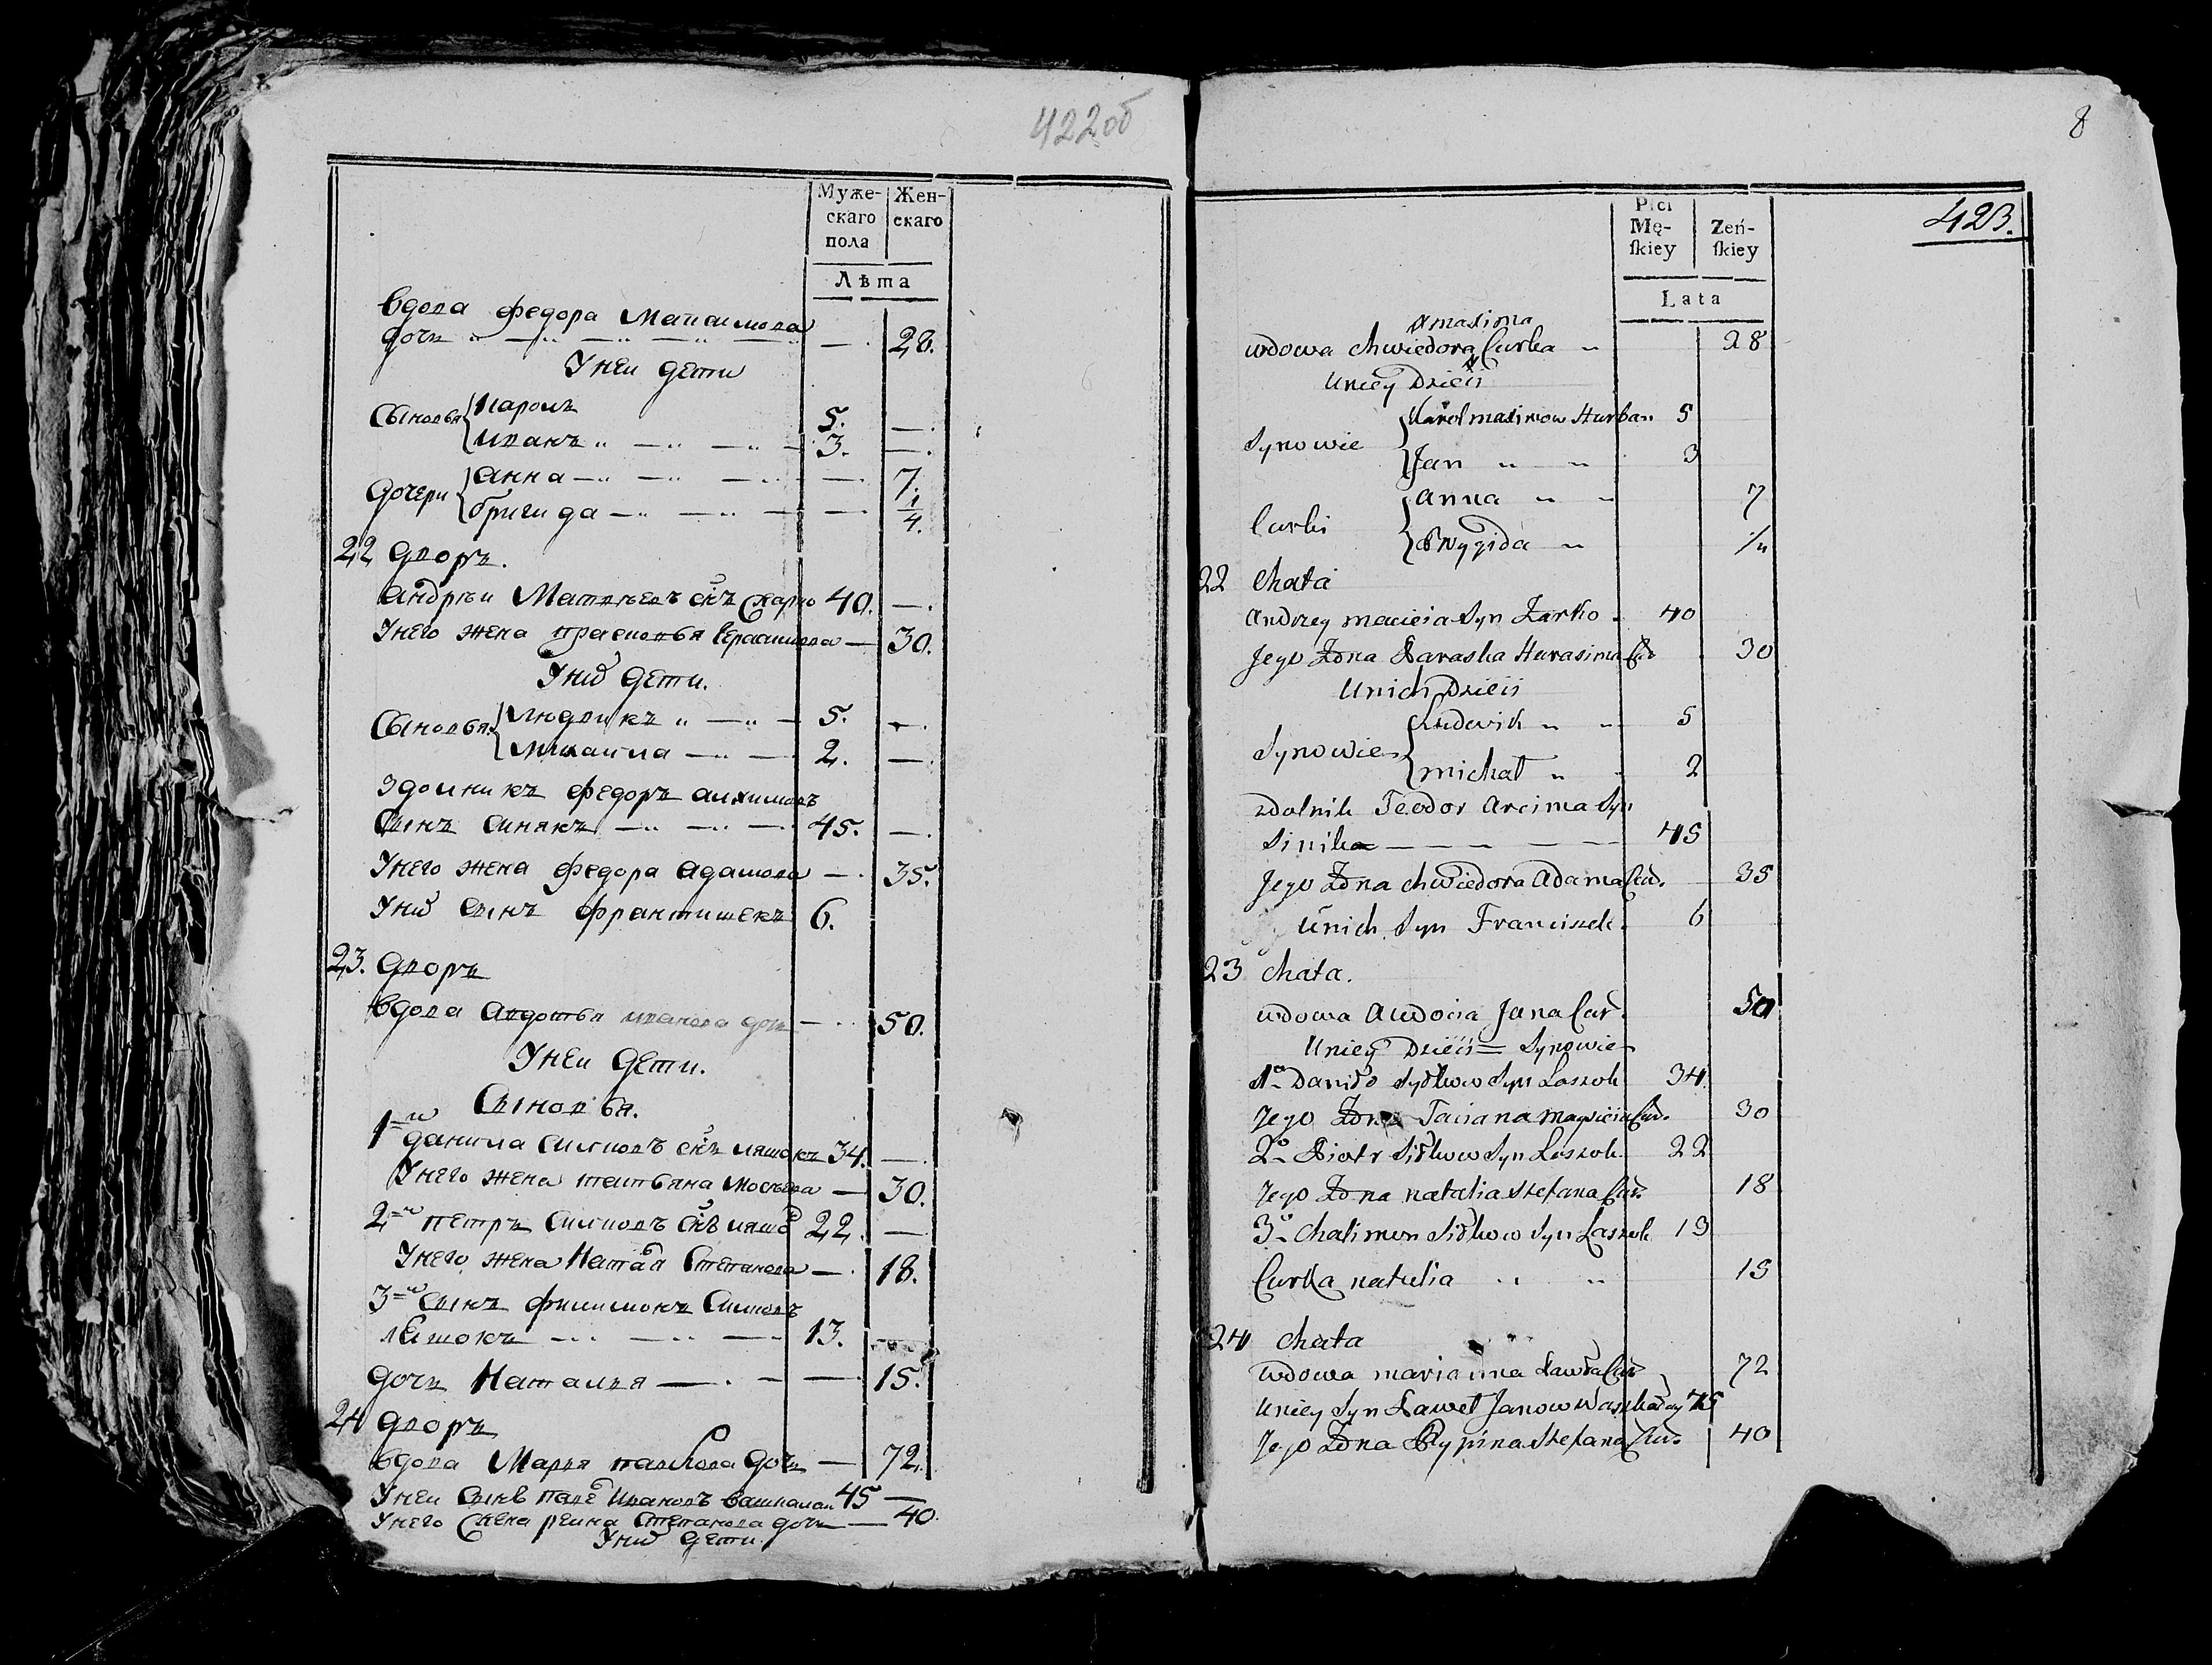 422об
Муже-
скаго
пола
Жен-
скаго
Лѣта
вдова федора Максимова
дочь 28.
Унеи дети
Сыновья Каролъ 5.
Иванъ 3.
дочери анна 7.
бригида 1/4.
22 дворъ.
андрѣи Матвѣевъ снъ 40.
Унего жена прасковья Герасимова 30.
Уних дети.
Сыновья Людвикъ 5.
Михаила 2.
Здолникъ федоръ
Сынъ Синякъ 45.
Унего жена федора адамова 35.
Уних Сынъ франтишекъ 6.
23. дворъ
вдова авдотья иванова дочь 50.
Унеи дети.
Сыновья.
1й данила Силковъ снъ ляшокъ 34.
Унего жена татьяна Мосеева 30.
2й петръ Силковъ Снъ ляшо 22.
Унего жена Натал Степанова 18.
3й Сынъ филимонъ Силковъ
ляшокъ 13.
дочь Наталья 15.
24 дворъ
вдова Марья павлова дочь 72.
Унеи Сынъ паве Ивановъ 45
Унего жена Степанова дочь 40.
Уних дети.
8
423.
Płci
Mę-
skiey
Zeń-
skiey
Lata
maxima
wdowa chwiedora Curka 28
Uniey Dzieci
Synowie Karol maximow Hurban 5
Jan 3
Curki anna 7
Brygida 1/4
22 chata
Andrzey macieia Syn Żarko 40
Jego Żona Paraska Harasima Cur 30
Unich Dzieci
Synowie Ludwik 5
michał 2
zdolnik Teodor Arcima Syn
Sinika 45
Jego Żona chwiedora Adama Cur. 35
Unich Syn Franciszek 6
23 chata.
wdowa Audocia Jana Cur. 50
Uniey Dzieci = Synowie
1o Daniło Syłkow Syn Laszok 34
Jego Żona Taciana Cur. 30
2o Piotr Siłkow Syn Laszok 22
Jego Żona natalia Stefana Cur. 18
3o Chalimon Siłkow Syn Laszok 13
Curka natalia 15
24 chata
wdowa marianna Pawła Cur 72
Uniey Syn Paweł Janow 45
Jego Żona Stefana Cur. 40